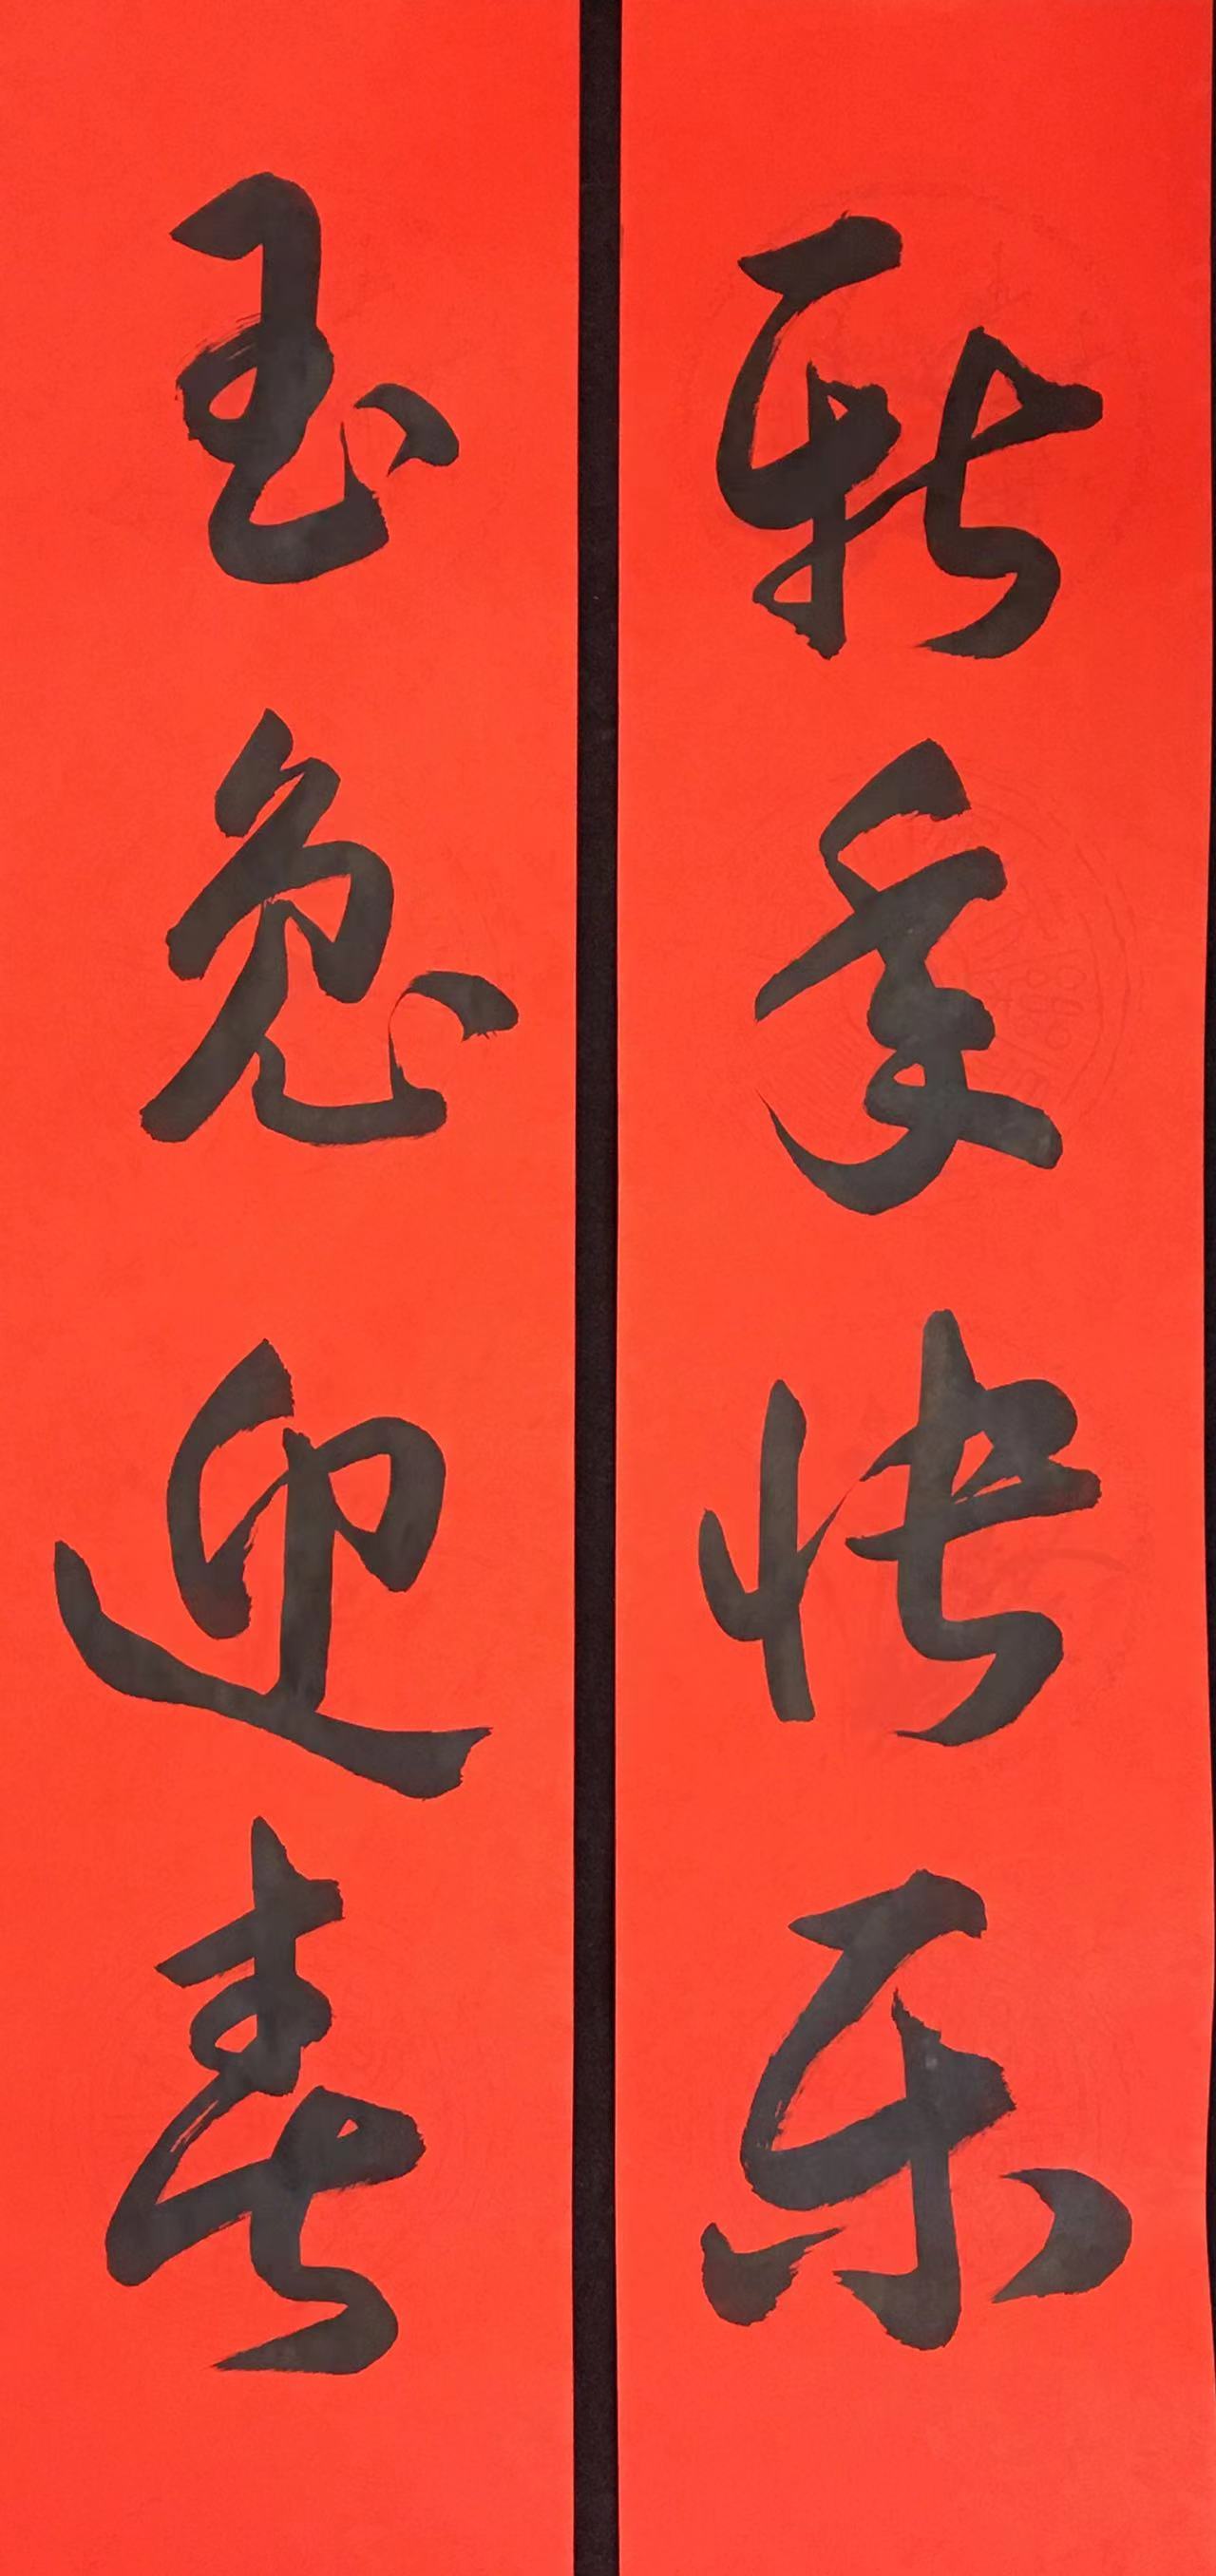 新年快乐
玉兔迎春